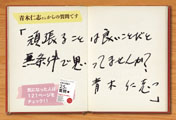 青木仁志さんからの質問です
「頑張ることは良いことだと
無条件で思ってませんか?
青木仁志」
気になった人は
121ページを
チェック!!